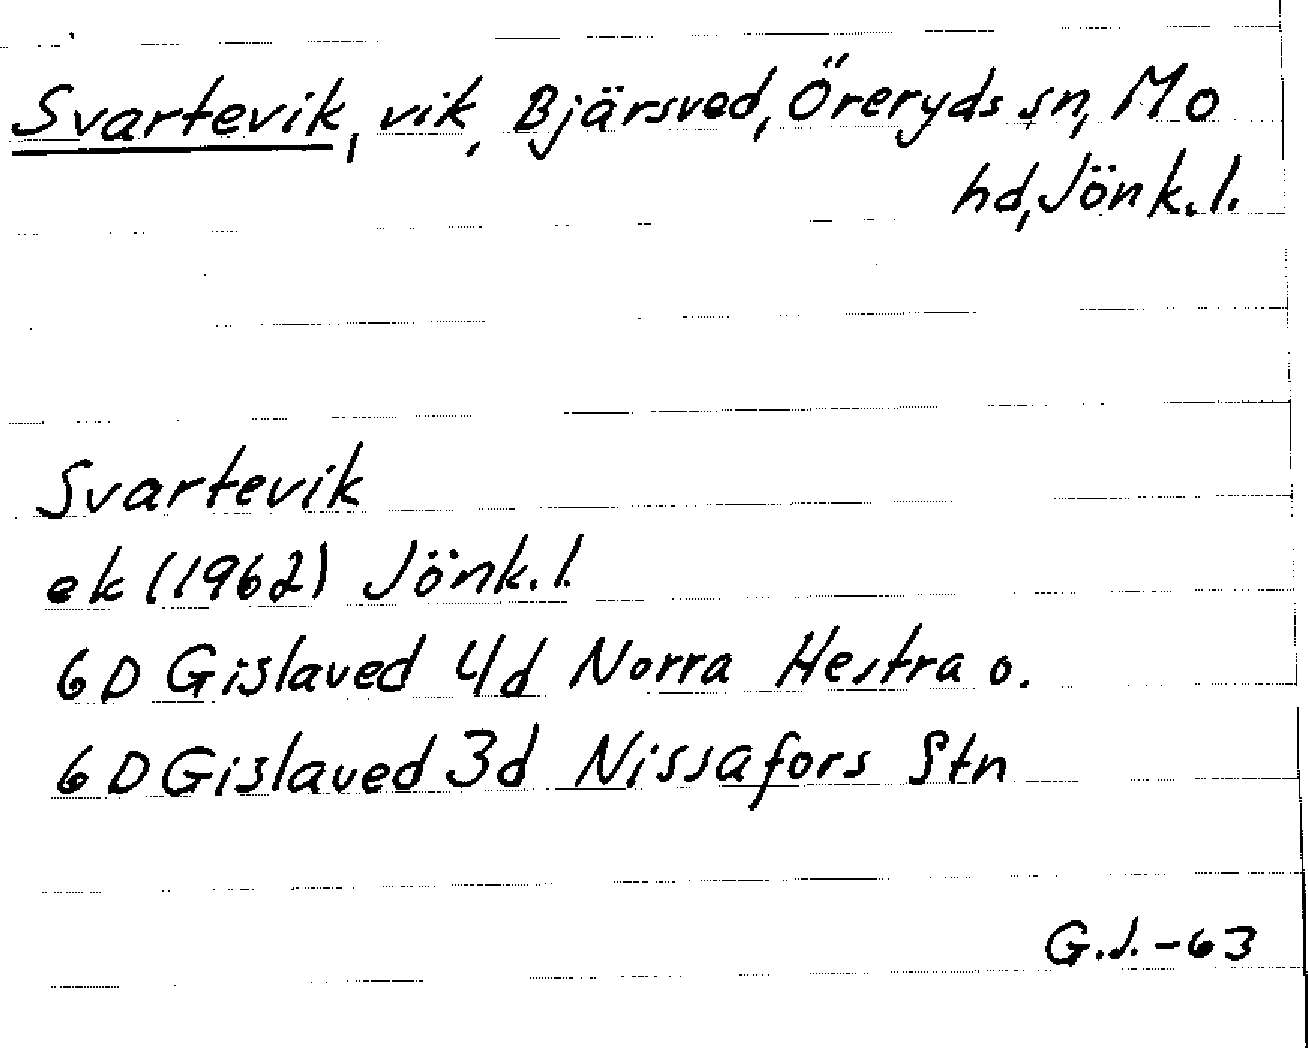 Svartevik, vik, Bjärsved, Öreryds sn, Mo
hd, Jönk.l.
Svartevik
ek (1962) Jönk.l.
6D Gislaved 4d Norra Hestra o.
6D Gislaved 3d Nissafors Stn
G.J.-63